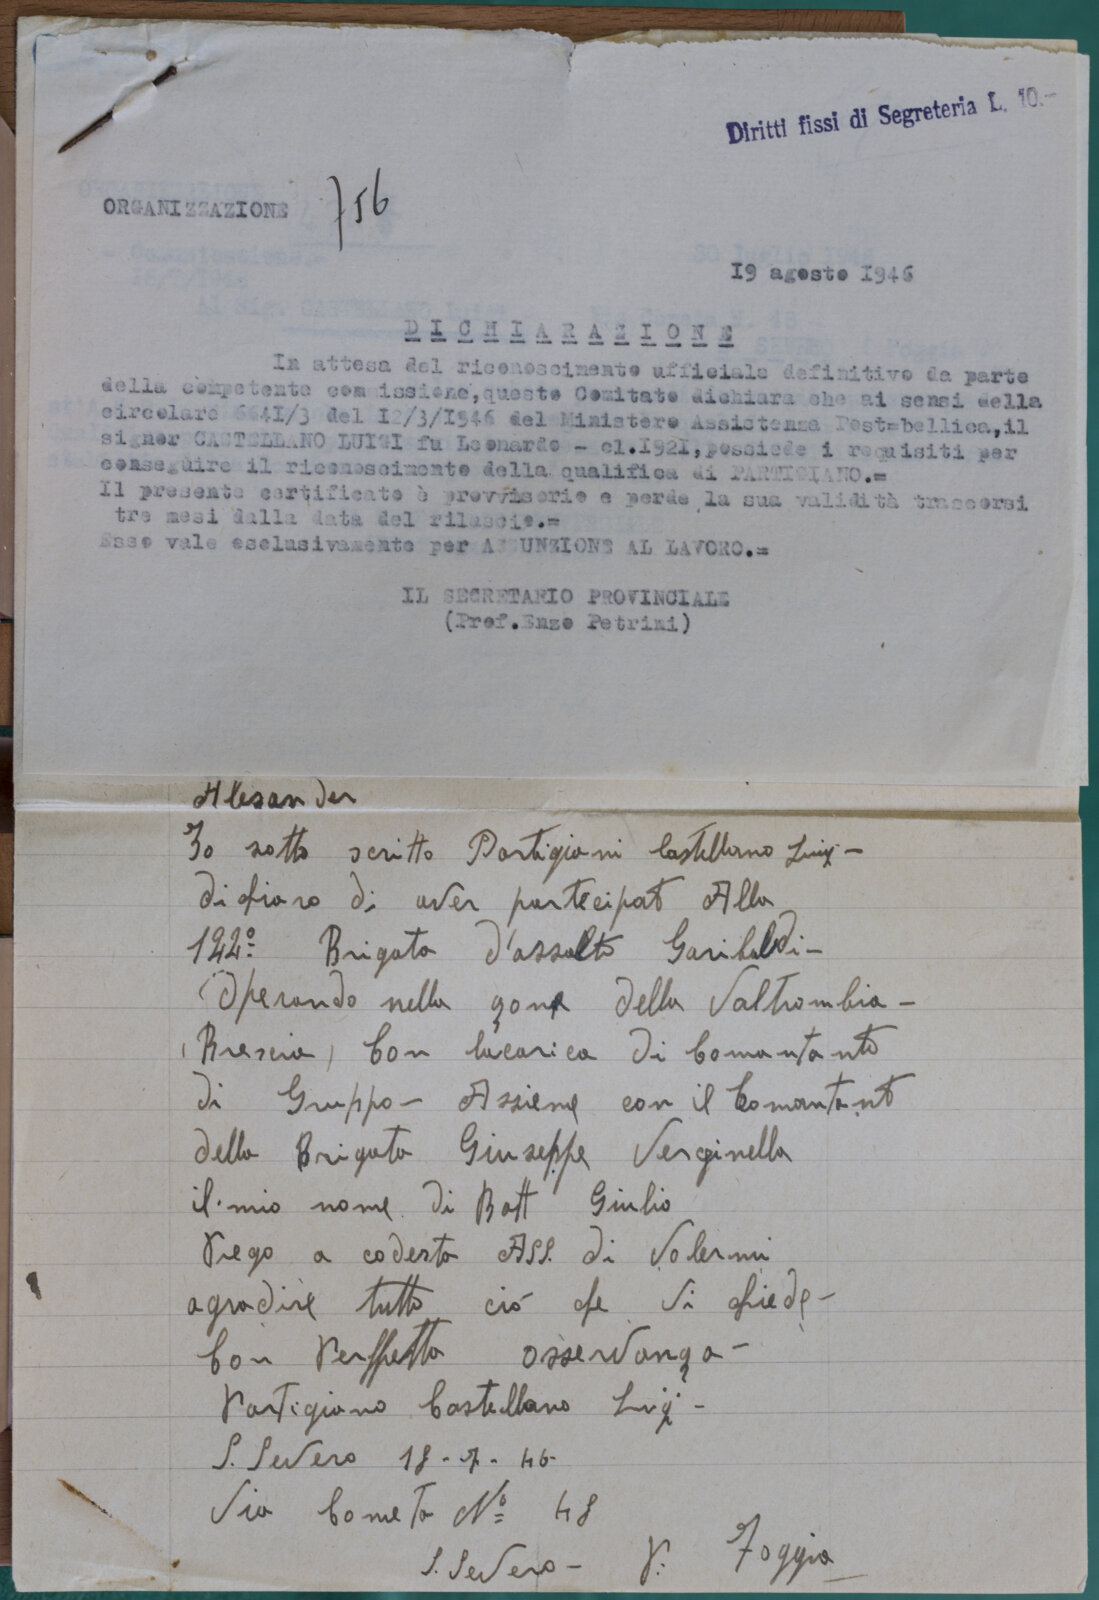 Diritti fissi di Segreteria L. 10.-
ORGANIZZAZIONE 756
19 agosto 1946
DICHIARAZIONE
In attesa del riconoscimento ufficiale definitivo da parte
della competente com issione,questo Comitato dichiara che ai sensi della
circolare 6641/3 del 12/3/1946 del Ministero Assistenza Post=bellica,il
signor CASTELLANO LUIGI fu Leonardo - cl.1921,possiede i requisiti per
conseguire il riconoscimento della qualifica di PARTIGIANO.=
Il presente certificato è provvisorio e perde la sua validità trascorsi
tre mesi dalla data del rilascio.=
Esso vale esclusivamente per ASSUNZIONE AL LAVORO.=
IL SEGRETARIO PROVINCIALE
(Prof.Enzo Petrini)
Alesander
Io sotto scritto Partigiani Castellano Luigi-
dichiaro di aver partecipat Alla
122º Brigata d'assalto Garibaldi-
Operando nella zona della Valtrombia-
(Brescia) Con lacarica di Comantante
di Gruppo- Assieme con il Comantant
della Brigata Giuseppe Verginella
il mio nome di Batt Giulio
Prego a codesta ASS. di Volermi
agradire tutto ciò che Vi chiede-
Con Perffetta osservanza-
Partigiano Castellano Luigi-
S. Severo 18-7-46-
Via Cometa Nº 48
S. Severo- P: Foggia